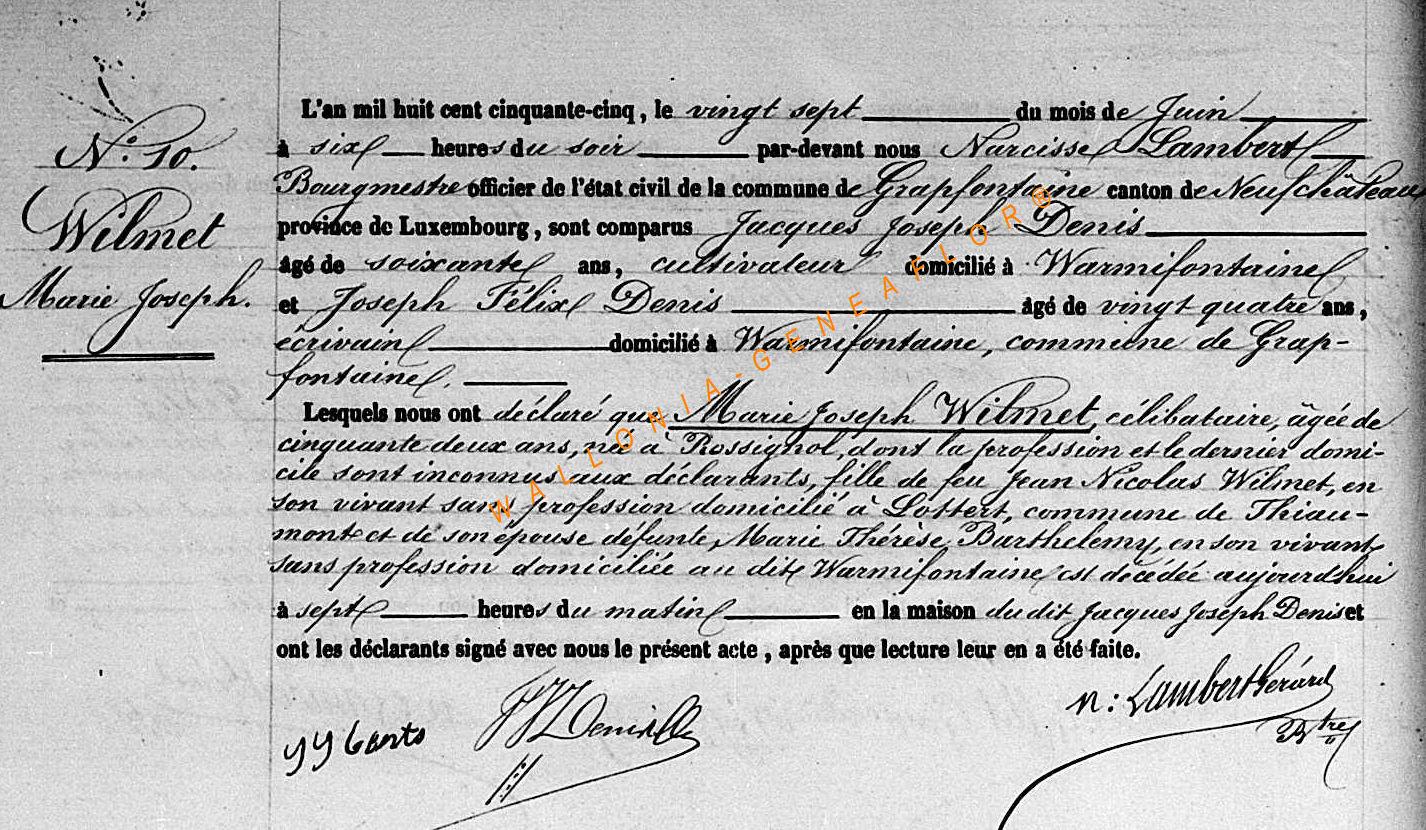 L'an mil huit cent cinquante-cinq, le vingt sept du mois de Juin
à six heures du soir par-devant nous Narcisse Lambert
Bourgmestre officier de l'état civil de la commune de Grapfontaine canton de Neufchâteau
province de Luxembourg, sont comparus Jacques Joseph Denis
âgé de soixante ans, cultivateur domicilié à Warmifontaine
et Joseph Félix Denis âgé de vingt quatre ans,
écrivain domicilié à Warmifontaine, commune de Grap-
fontaine.
Lesquels nous ont déclaré que Marie Joseph Wilmet, célibataire, âgée de
cinquante deux ans, née à Rossignol, dont la profession et le dernier domi-
cile sont inconnus aux déclarants, fille de feu Jean Nicolas Wilmet, en
son vivant sans profession domicilié à Lottert, commune de Thiau-
mont et de son épouse défunte, Marie Thérèse Barthelemy, en son vivant
sans profession domiciliée au dit Warmifontaine est décédée aujourd'hui
à sept heures du matin en la maison du dit Jacques Joseph Denis et
ont les déclarants signé avec nous le présent acte, après que lecture leur en a été faite.
N° 10.
Wilmet
Marie Joseph.
n: Lambert Gérard
Btre
WALLONIA-GENEAFLOR®